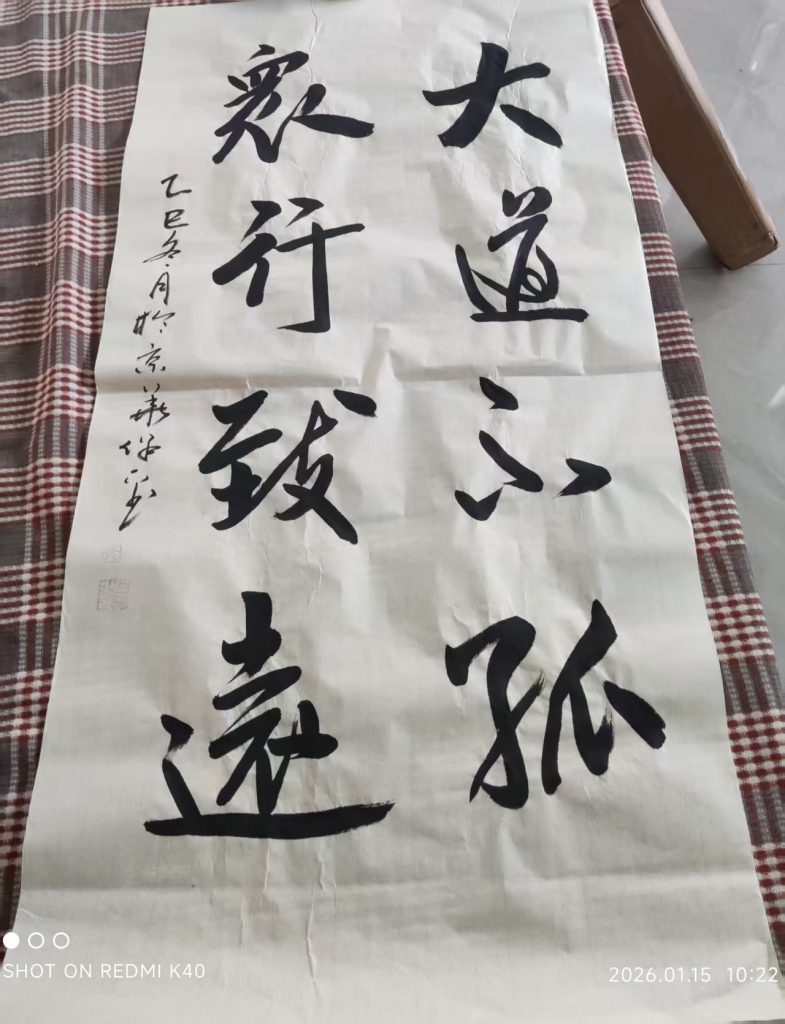 大道不孤
衆行致遠
乙巳冬月於京華
SHOT ON REDMI K40
2026.01.15 10:22